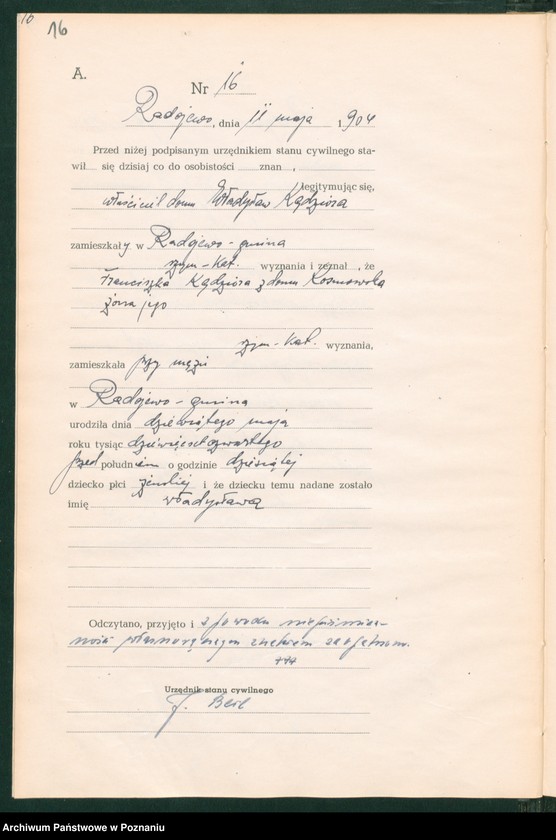 16
16
A.
Nr 16
Radojewo, dnia 11 maja 1904
Przed niżej podpisanym urzędnikiem stanu cywilnego sta-
wił się dzisiaj co do osobistości znan ,
legitymując się,
właściciel domu Władysław Kądziora
zamieszkały w Radojewo - gmina
rzym-Kat. wyznania i zeznał , że
Franciszka Kądziora z domu Kosmowska
żona jego
rzym-Kat. wyznania,
zamieszkała przy mężu
w Radojewo - gmina
urodziła dnia dziewiątego maja
roku tysiąc dziewięćsetczwartego
przed południem o godzinie dziesiątej
dziecko płci żeńskiej i że dziecku temu nadane zostało
imię Władysława
Odczytano, przyjęto i z powodu nieumie
własnoręcznym znakiem zaopatrzono.
+++
Urzędnik stanu cywilnego
Archiwum Państwowe w Poznaniu